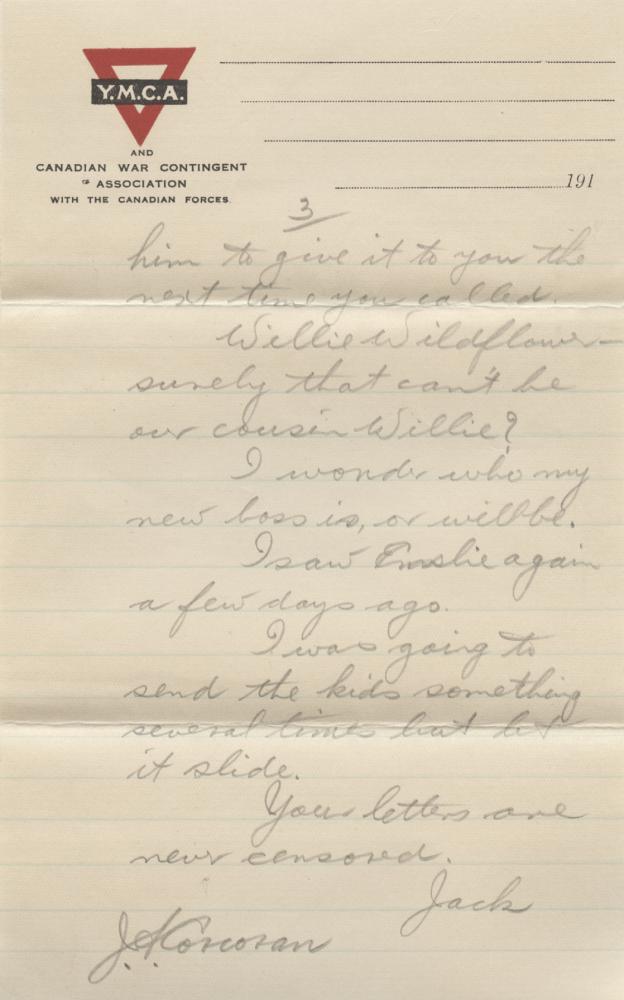 Y.M.C.A.
AND
CANADIAN WAR CONTINGENT
ASSOCIATION
WITH THE CANADIAN FORCES.
191
3
him to give it to you the
next time you called.
Willie Wildflower—
surely that can't be
our cousin Willie?
I wonder who my
new boss is, or will be.
I saw Emslie again
a few days ago.
I was going to
send the kids something
several times but let
it slide.
Your letters are
never censored.
Jack
Corcoran